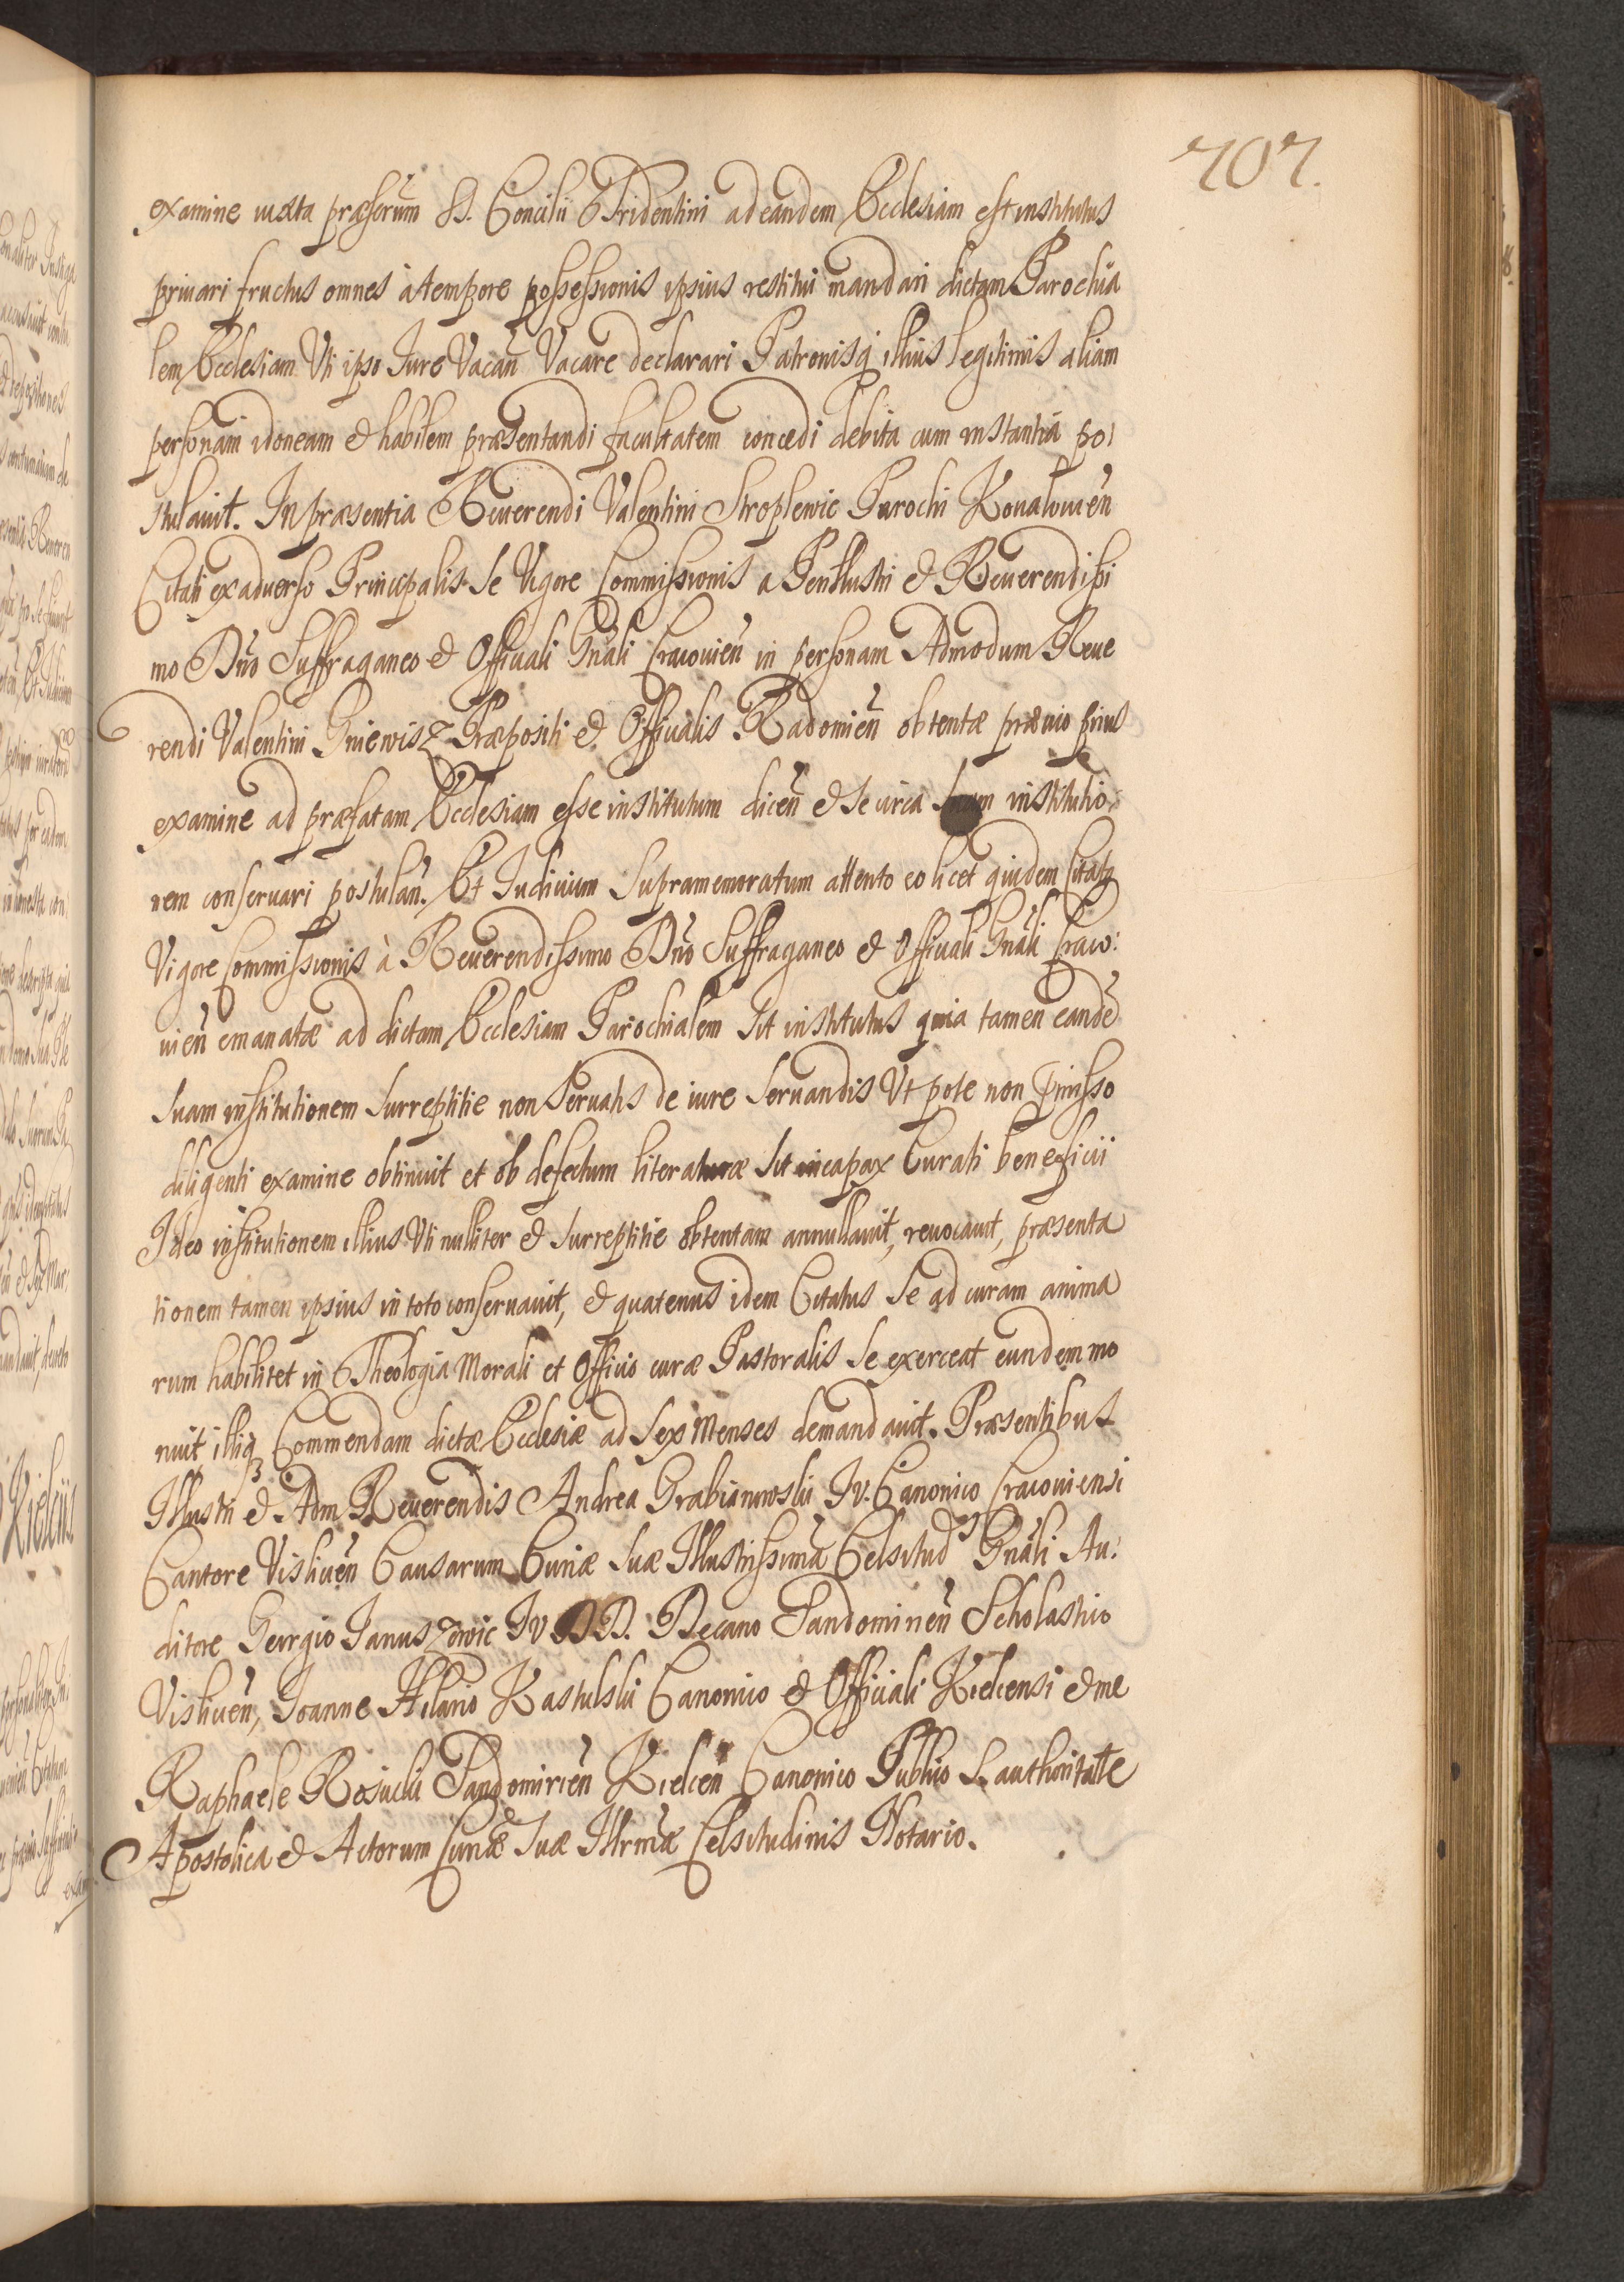 707.
examine iuxta præscrum SS. Concilii Tridentini ad eandem Ecclesiam est institutus
priuari fructus omnes à tempore possessionis ipsius restitui mandari dictam Parochia
lem Ecclesiam Vti ipso Iure Vacan̄ Vacare declarari Patronisq illius legitimis aliam
personam idoneam et habilem præsentandi facultatem concedi debita cum instantia po:
stulauit. In præsentia Reuerendi Valentini Stroplewic Parochi Koualouien̄
Citati ex aduerso Principalis se Vigore Commissionis a Perillustri et Reuerendissi
mo Dn̄o Suffraganeo et Officiali Gnāli Cracouien̄ in personam Admodum Reue
rendi Valentini Gniewisz Præpositi et Officialis Radomien̄ obtentæ præuio prius
examine ad præfatam Ecclesiam esse institutum dicen̄ et se circa suam institutio
nem conseruari postulan̄. Et Iudicium Supramemoratum attento eo licet quidem Citatq
Vigore Commissionis à Reuerendissimo Dn̄o Suffraganeo et Officiali Gnāli Craco:
uien̄ emanatæ ad dictam Ecclesiam Parochialem sit institutus quia tamen eandē
suam institutionem surreptitie non seruatis de iure seruandis Vt pote non p̄misso
diligenti examine obtinuit et ob defectum literaturæ sit incapax Curati beneficii
Ideo institutionem illius Vti nulliter et surreptitie obtentam annullauit, reuocauit, præsenta
tionem tamen ipsius in toto conseruauit, et quatenus idem Citatus se ad curam anima
rum habilitet in Theologia Morali et Officio curæ Pastoralis se exerceat eundem mo
nuit illiq3 Commendam dictæ Ecclesiæ ad sex Menses demandauit. Præsentibus
Illustri et Adm Reuerendis Andrea Grabianowski I.V. Canonico Cracouiensi
Cantore Vislicen̄ Causarum Curiæ Suæ Illustrissimæ Celsitud Gnāli Au:
ditore Georgio Ianuszowic IV DD. Decano Sandomirien̄ Scholastico
Vislicen̄, Ioanne Hilario Kastulski Canonico et Officiali Kielcensi et me
Raphaele Rosucki Sandomirien̄ Kielcen̄ Canonico Publico S. authoritate
Apostolica et Actorum Curiæ Suæ Illrmæ Celsitudinis Notario.